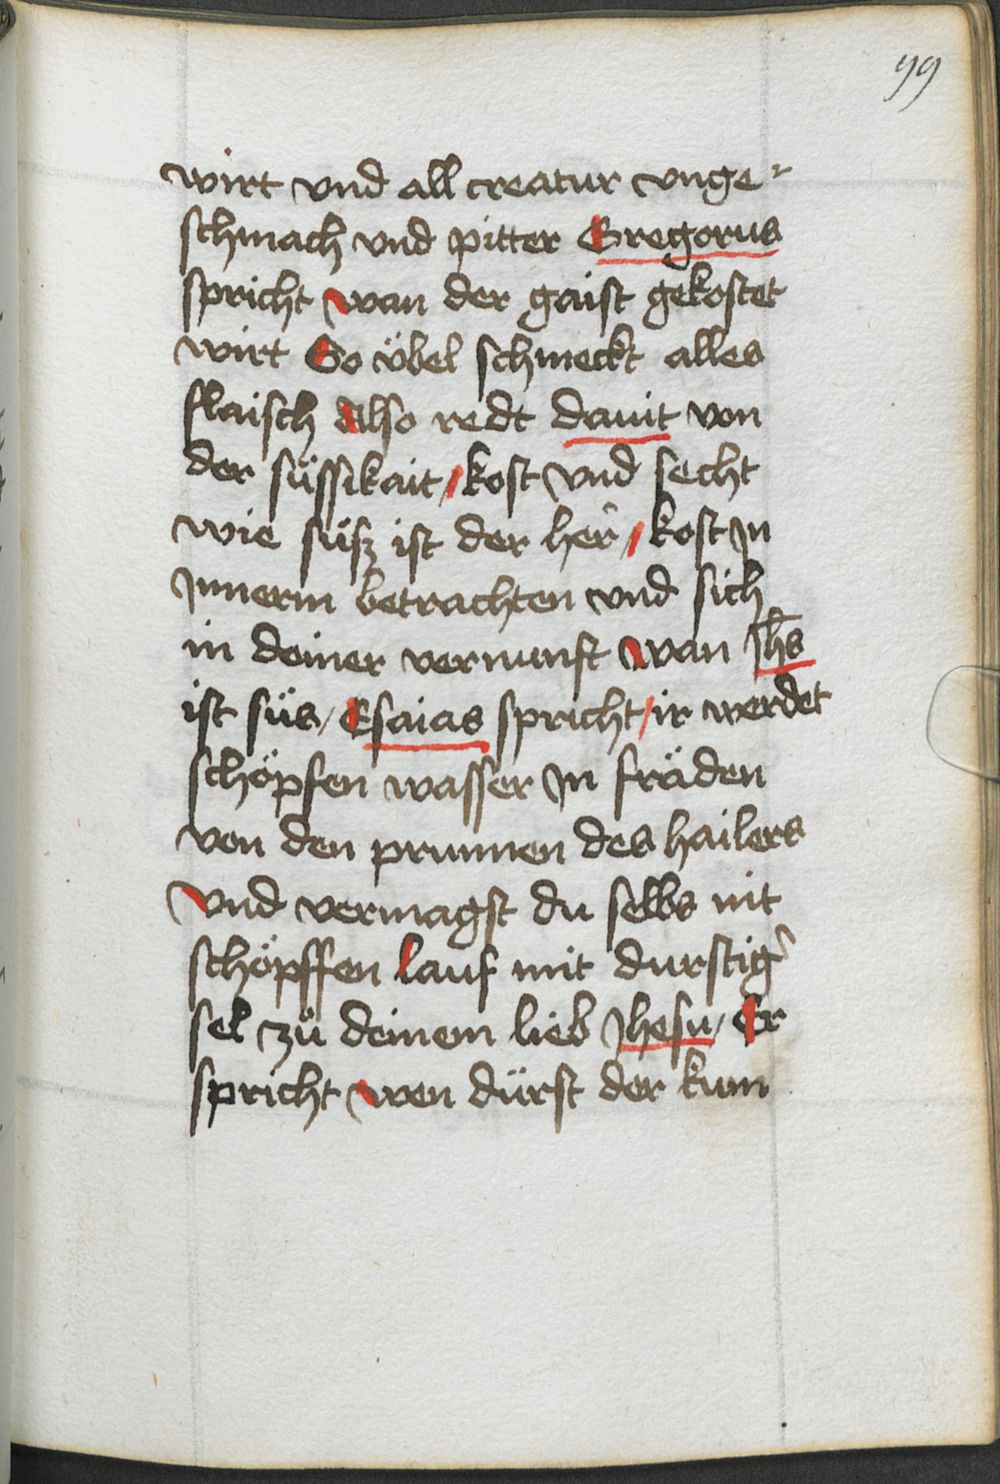 99
wirt vnd all creatur vnge-
schmach vnd pitter Gregorus
spricht wan der gaist gekostet
wirt So übel schmeckt alles
flaisch Also redt dauit von
der süssikait / kost vnd secht
wie süsz ist der her̂ / kost Jn
Jnnerm betrachten vnd sich
in deiner vernunft wan Jh̅s
ist süs / Esaias spricht / ir werdet
schöpfen wasser Jn fräden
von den prunnen des hailers
vnd vermagst du selbs nit
schöpffen lauf mit durstig᾿
sel zü deinem lieb Jhesu / Er
spricht wen dürst der kum